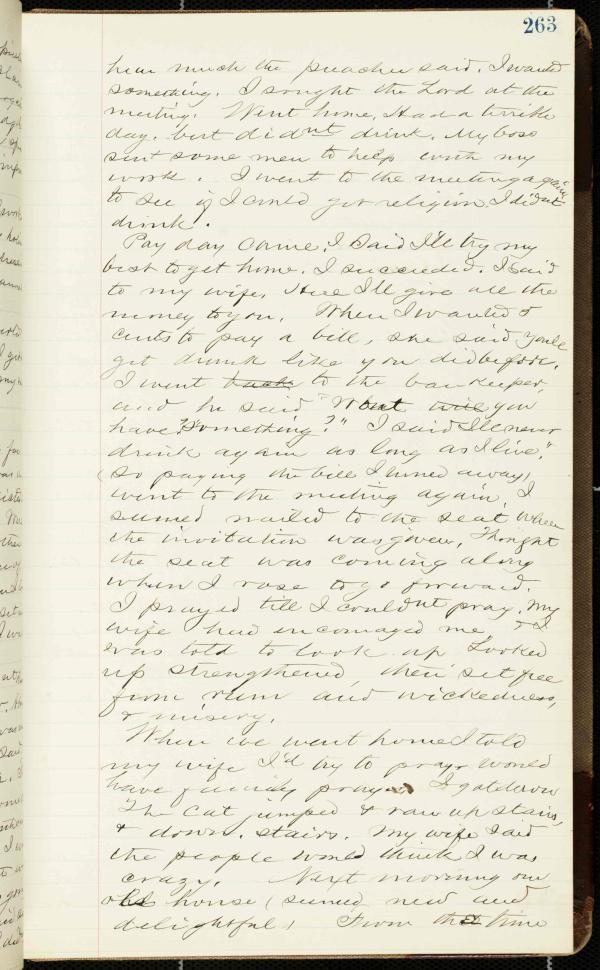 263
hear much the preacher said. I wanted
something. I sought the Lord at the
meeting. Went home. Had a terrible
day. but didnt drink. My boss
sent some men to help with my
work. I went to the meeting again
to see if I could get religion. I didnt
drink.
Pay day came. I said I'll try my
best to get home. I succeeded. I said
to my wife, Here I'll give all the
money to you. When I wanted 5
cents to pay a bill, she said you'll
get drunk like you did before.
I went back to the barkeeper,
and he said "What will you
have? Something?" I said I'll never
drink again as long as I live."
(so paying the bill I turned away)
went to the meeting again. I
seemed nailed to the seat when
the invitation was given. Thought
the seat was coming along
when I rose to go forward.
I prayed till I couldnt pray. My
wife had encouraged me, & I
was told to look up Looked
up strengthened, then set free
from rum and wickedness,
& misery.
When we went home I told
my wife I'd try to pray & would
have family prayer I got down
The cat jumped & ran up stairs,
& down stairs. My wife said
the people would think I was
crazy. Next morning our
old house (seemed new and
delightful) From that time